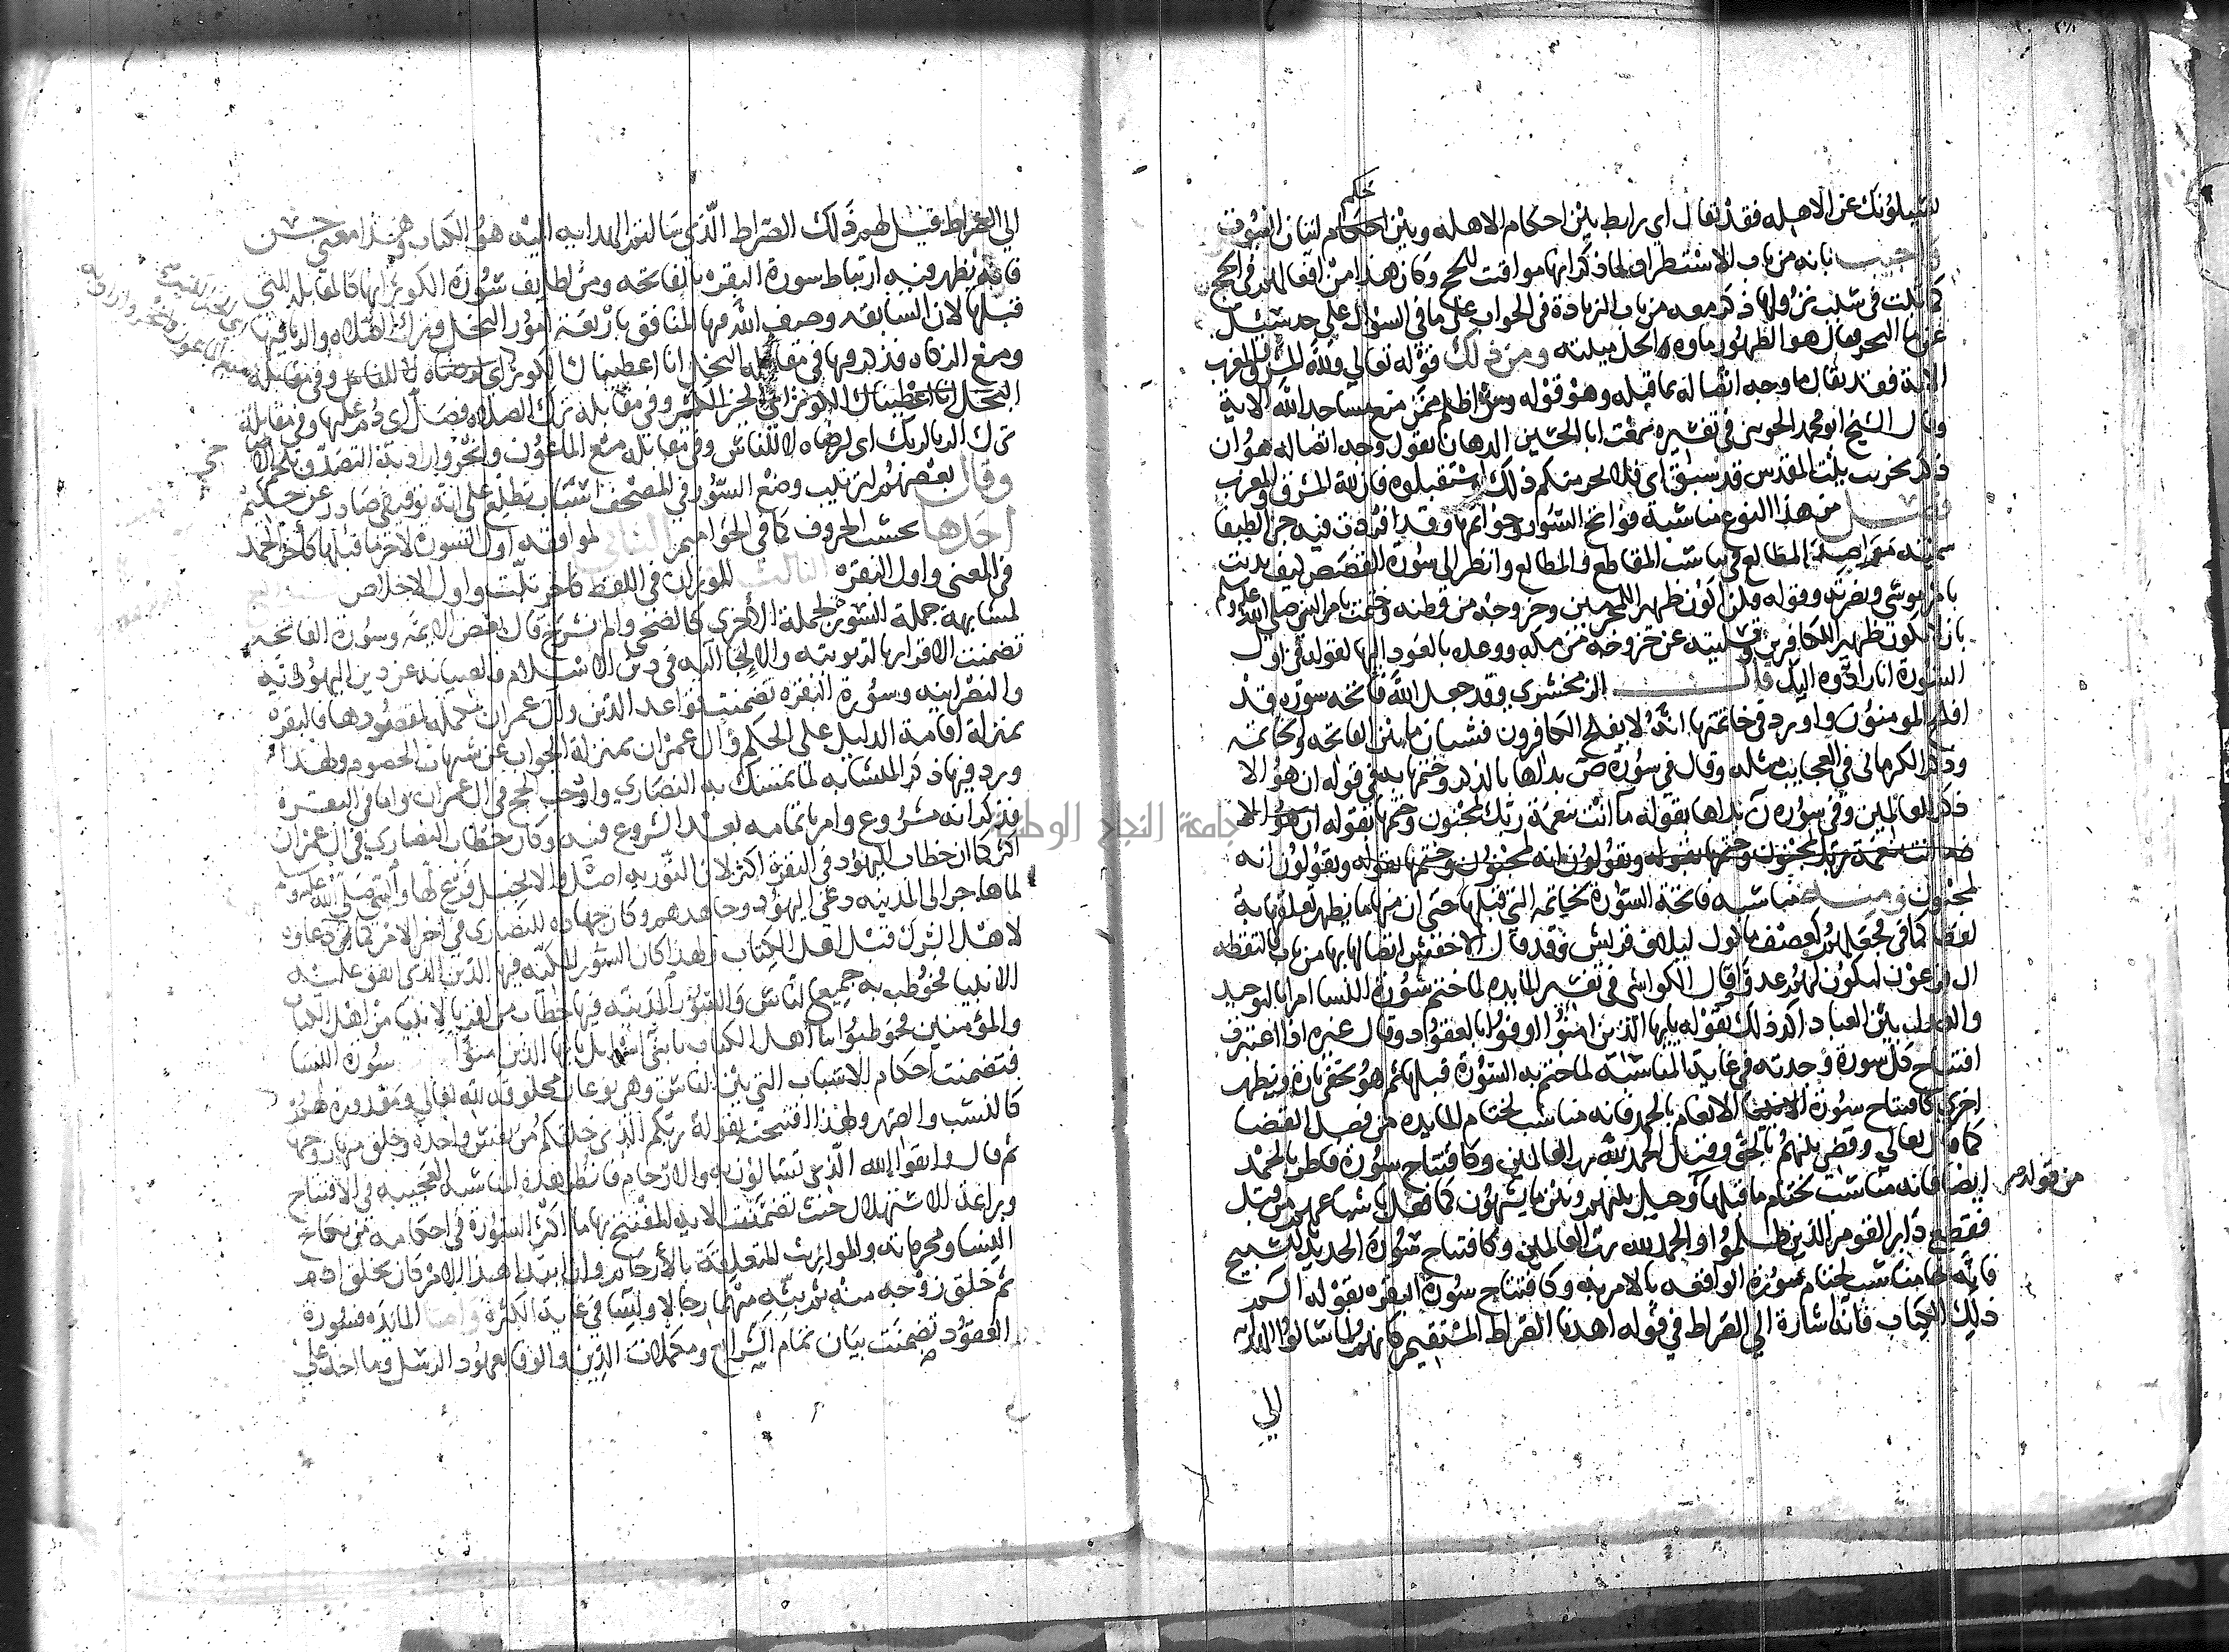 يسيلونك عن الاهله فقد يقال اي رابط بين احكام الاهله وبين احكام اتيان البيوت
حكم
واجيب بانه من باب الاستطراد لما ذكر انها مواقيت للحج وكان هذا من افعالهم في الحج
كما ثبت في سبب نزولها ذكر معه من باب الزيادة في الجواب على ما في السؤال على حد سئل
عن ما البحر فقال هو الطهور ماوه الحل ميتته ومن ذلك قوله تعالي ولله المشرق والمغرب
الاية فقد يقال ما وجه اتصاله بما قبله وهو قوله ومن اظلم ممن منع مساجد الله الاية
وقال الشيخ ابو محمد الجويني في تفسيره سمعت ابا الحسين الدهان يقول وجه اتصاله هو ان
ذكر تخريب بيت المقدس قد سبق اي فلا يجرمنكم ذلك واستقبلوه فان لله المشرق والمغرب
فصل من هذا النوع مناسبة فواتح السور وخواتمها وقد افردت فيه جزا لطيفا
سميته مراصد المطالع في تناسب المقاطع والمطالع وانظر الى سورة القصص كيف بديت
بامر موسى ونصرته وقوله فلن اكون ظهيرا للمجرمين وخروجه من وطنه وختمت بامر النبي صلى الله عليه وسلم
بان لا يكون ظهيرا للكافرين وتسليته عن خروجه من مكه ووعده بالعود اليها لقوله في اول
السورة انا رادوه اليك قال الزمخشري وقد جعل الله فاتحه سورة قد
افلح المومنون واورد في خاتمتها انه لا يفلح الكافرون فشتان ما بين الفاتحه والخاتمه
وذكر الكرماني في العجايب مثله وقال في سورة ص بداها بالذكر وختمها به في قوله ان هو الا
ذكر للعالمين وفي سورة ن بداها بقوله ما انت بنعمة ربك بمجنون وختمها بقوله ان هو الا
ما انت بنعمة ربك بمجنون وختمها بقوله ويقولون انه لمجنون وختمها بقوله ويقولون انه
لمجنون ومنه مناسبه فاتحة السورة لخاتمة التي قبلها حتى ان منها ما يظهر تعلقها به
لفظا كما في فجعلهم كعصف ماكول ليلاف قريش فقد قال الاخفش اتصالها بها من باب فالتقطه
ال فرعون ليكون لهم عدوا وقال الكواشي في تفسير المايده لما ختم سورة النسا امرا بالتوحيد
والعدل بين العباد اكد ذلك بقوله يايها الذين امنوا اوفوا بالعقود وقال غيره اذا اعتبرت
افتتاح كل سورة وجدته في غاية المناسبة لما ختم به السورة قبلها ثم هو يخفى تارة ويظهر
اخرى كافتتاح سورة الانعام بالحمد فانه مناسب لختام المايده من فصل القضا
كما قال تعالي وقضى بينهم بالحق وقيل الحمد لله رب العالمين وكافتتاح سورة فاطر بالحمد
ايضا فانه مناسب لختام ما قبلها وحيل بينهم وبين ما يشتهون كما فعل باشياعهم من قبل
من قوله
فقطع دابر القوم الذين ظلموا والحمد لله رب العالمين وكافتتاح سورة الحديد بالتسبيح
فانه مناسب لختام سورة الواقعه بالامر به وكافتتاح سورة البقره بقوله الم
ذلك الكتاب فانه اشارة الي الصراط في قوله اهدنا الصراط المستقيم كانهم لما سالوا الهدايه
الي
الي الصراط قيل لهم ذلك الصراط الذي سالتم الهدايه اليه هو الكتاب وهذا معنى حسن
يظهر فيه ارتباط سورة البقره بالفاتحه ومن لطايف سورة الكوثر انها كالمقابله للتي
قبلها لان السابقه وصف الله فيها المنافق باربعة امور البخل وترك الصلاه والريا فيها
ومنع الزكاه فذكر فيها في مقابله البخل انا اعطيناك الكوثر اي
البخل انا اعطيناك الكوثر اي الخير الكثير وفي مقابله ترك الصلاه فصل اي دم عليها وفي مقابلة
ترك الريا لربك اي لرضاه لا للناس وفي مقابله منع الماعون وانحر واراد به التصدق بلحم الاضاحي
وقال بعضهم لترتيب وضع السور في المصحف اسباب تطلع على انه توقيفي صادر عن حكيم
احدها بحسب الحروف كما في الحواميم الثاني لموافقه اول السورة لاخر ما قبلها كاخر الحمد
في المعنى واول البقره الثالث للوزن في اللفظ كاخر تبت واول الاخلاص
لمشابهة جملة السورة لجملة الاخرى كالضحى والم نشرح قال بعض الايمه وسورة الفاتحه
تضمنت الاقرار بالربوبيه والالتجا اليه في دين الاسلام والصيانه عن دين اليهوديه
والنصرانيه وسورة البقره تضمنت قواعد الدين وال عمران مكمله لمقصودها فالبقره
بمنزلة اقامة الدليل على الحكم وال عمران بمنزلة الجواب عن شبهات الخصوم ولهذا
ورد فيها ذكر المتشابه لما تمسك به النصاري واوجب الحج في ال عمران واما في البقره
فذكر انه مشروع وامر باتمامه بعد الشروع فيه وكان خطاب النصاري في ال عمران
اكثر كما ان خطاب اليهود في البقرة اكثر لان التوريه اصل والانجيل فرع لها والنبي صلى الله عليه وسلم
لما هاجر الى المدينه دعى اليهود وجاهدهم وكان جهاده للنصارى في اخر الامر كما كان دعاوه
لاهل الشرك قبل اهل الكتاب ولهذا كان السور المكيه فيها الدين الذي اتفق عليه
الانبيا فخوطب به جميع الناس والسور المدنيه فيها خطاب من اقر بالانبيا من اهل الكتاب
والمؤمنين فخوطبوا يا اهل الكتاب يا بني اسرايل يايها الذين امنوا سورة النسا
فتضمنت احكام الاسباب التي بين الناس وهي نوعان مخلوقه لله تعالي ومقدورة لهم
كالنسب والصهر ولهذا افتتحت بقوله ربكم الذي خلقكم من نفس واحدة وخلق منها زوجها
ثم قال واتقوا الله الذي تسالون به والارحام فانظر هذه المناسبه العجيبه في الافتتاح
وبراعة الاستهلال حيث تضمنت الايه المفتتح بها ما اكثر السورة في احكامه من نكاح
النسا ومحرماته والمواريث المتعلقة بالارحام وان ابتدا هذا الامر كان بخلق ادم
ثم خلق زوجه منه ثم بث منهما رجالا ونسا في غاية الكثرة واما المايده فسورة
العقود تضمنت بيان تمام الشرايع ومكملات الدين والوفا بعهود الرسل وما اخذ على